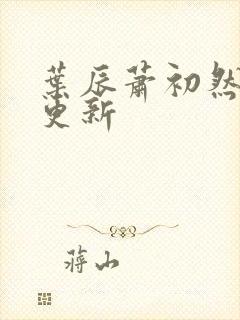 葉辰蕭初然
更新
蔣山